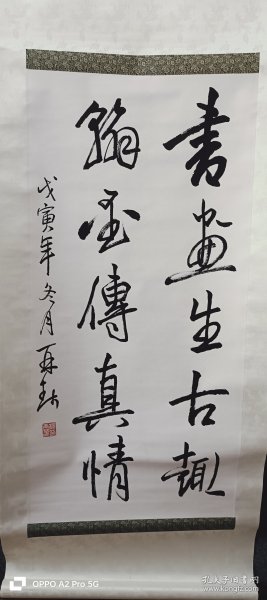 書畫生古趣
翰墨傳真情
戊寅年冬月
OPPO A2 Pro 5G
孔夫子旧书网